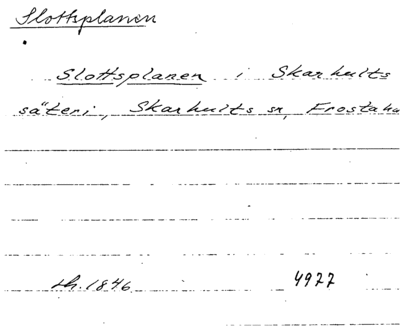 Slottsplanen
Slottsplanen i Skarhults
säteri, Skarhults sn, Frosta hd
sk. 1846 4977